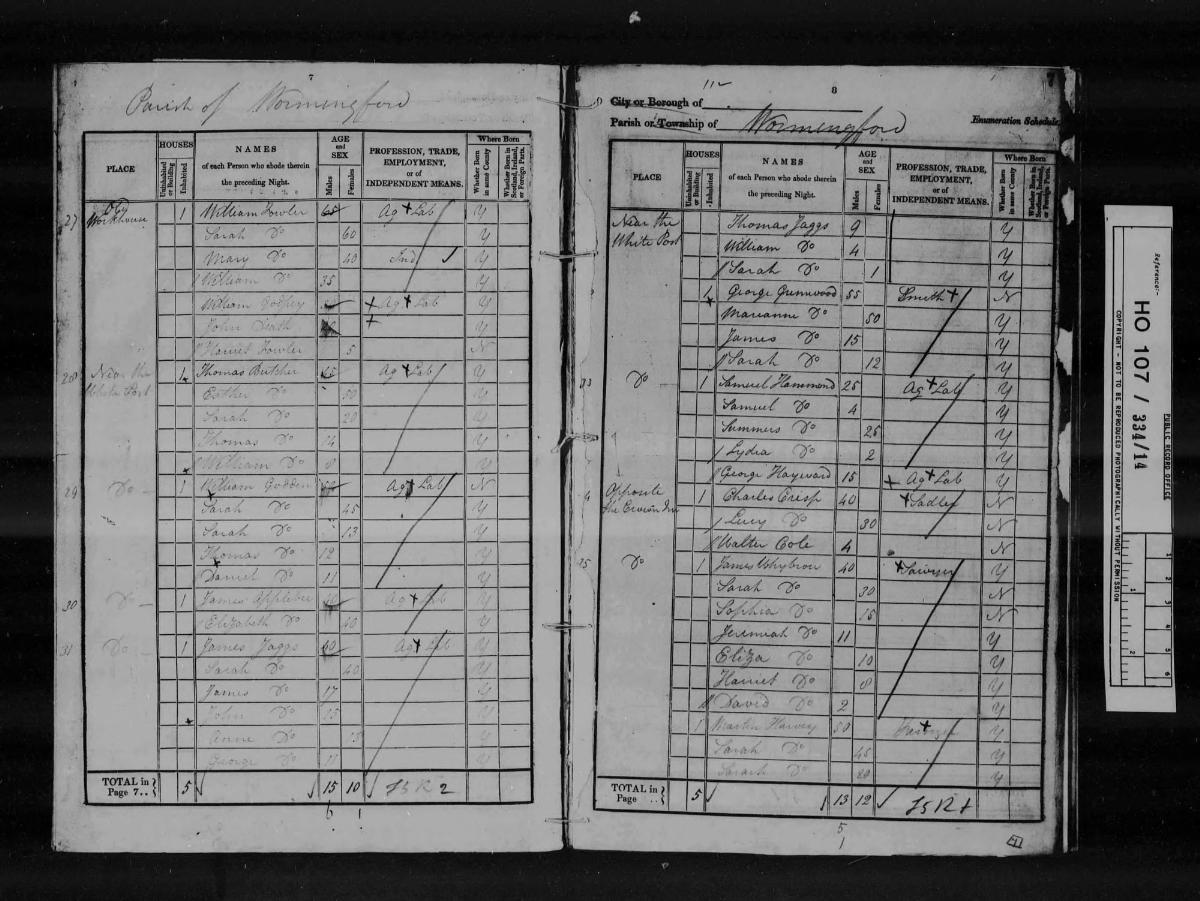 7
Parish of Wormingford
PLACE
HOUSES
Uninhabited or Building
Inhabited
NAMES
of each Person who abode therein
the preceding Night.
AGE
and
SEX
Males
Females
PROFESSION, TRADE,
EMPLOYMENT,
or of
INDEPENDENT MEANS.
Where Born
Whether Born in same County
Whether Born in Scotland, Ireland, or Foreign Parts.
27 Workhouse 1 William Fowler 65 Ag Lab Y
Sarah Do 60 Y
Mary Do 40 Ind Y
William Do 35 Y
William Ag Lab Y
John
Harriet Fowler 5 N
28 Near the 1 Thomas Butcher 65 Ag Lab Y
White Post Esther Do 50 Y
Sarah Do 20 Y
Thomas Do 14 Y
William Do 8 Y
29 Do 1 William Godden Ag Lab N
Sarah Do 45 Y
Sarah Do 13 Y
Thomas Do 12 Y
Daniel Do 11 Y
30 Do 1 James Applebee 40 Ag Lab Y
Elizabeth Do 40 Y
31 Do 1 James Jaggs 40 Ag Lab Y
Sarah Do 40 Y
James Do 17 Y
John Do 15 Y
Anne Do 15 Y
George Do 11 Y
TOTAL in
Page 7..
5 15 10
6 1
7
8
City or Borough of
Parish or Township of Wormingford
Enumeration Schedule.
PLACE
HOUSES
Uninhabited or Building
Inhabited
NAMES
of each Person who abode therein
the preceding Night.
AGE
and
SEX
Males
Females
PROFESSION, TRADE,
EMPLOYMENT,
or of
INDEPENDENT MEANS.
Where Born
Whether Born in same County
Whether Born in Scotland, Ireland, or Foreign Parts.
Near the Thomas Jaggs 9 Y
White Post William Do 4 Y
Sarah Do 1 Y
1 George Grimwood 55 Smith N
Marianne Do 50 Y
James Do 15 Y
Sarah Do 12 Y
33 Do 1 Samuel Hammond 25 Ag Lab Y
Samuel Do 4 Y
Summers Do 25 Y
Lydia Do 2 Y
George Hayward 15 Ag Lab Y
Opposite 1 Charles Crisp 40 Sadler N
the Crown Inn Lucy Do 30 N
Walter Cole 4 N
35 Do 1 James Whybrow 40 Sawyer Y
Sarah Do 30 N
Sophia Do 15 N
Jeremiah Do 11 Y
Eliza Do 10 Y
Harriet Do 8 Y
David Do 2 Y
1 Martin Harvey 50 Y
Sarah Do 45 Y
Sarah Do 20 Y
TOTAL in
Page ..
5 13 12
5
1
Reference:-
HO 107 / 334/14
PUBLIC RECORD OFFICE
COPYRIGHT - NOT TO BE REPRODUCED PHOTOGRAPHICALLY WITHOUT PERMISSION
1
2
3
4
5
6
1
2